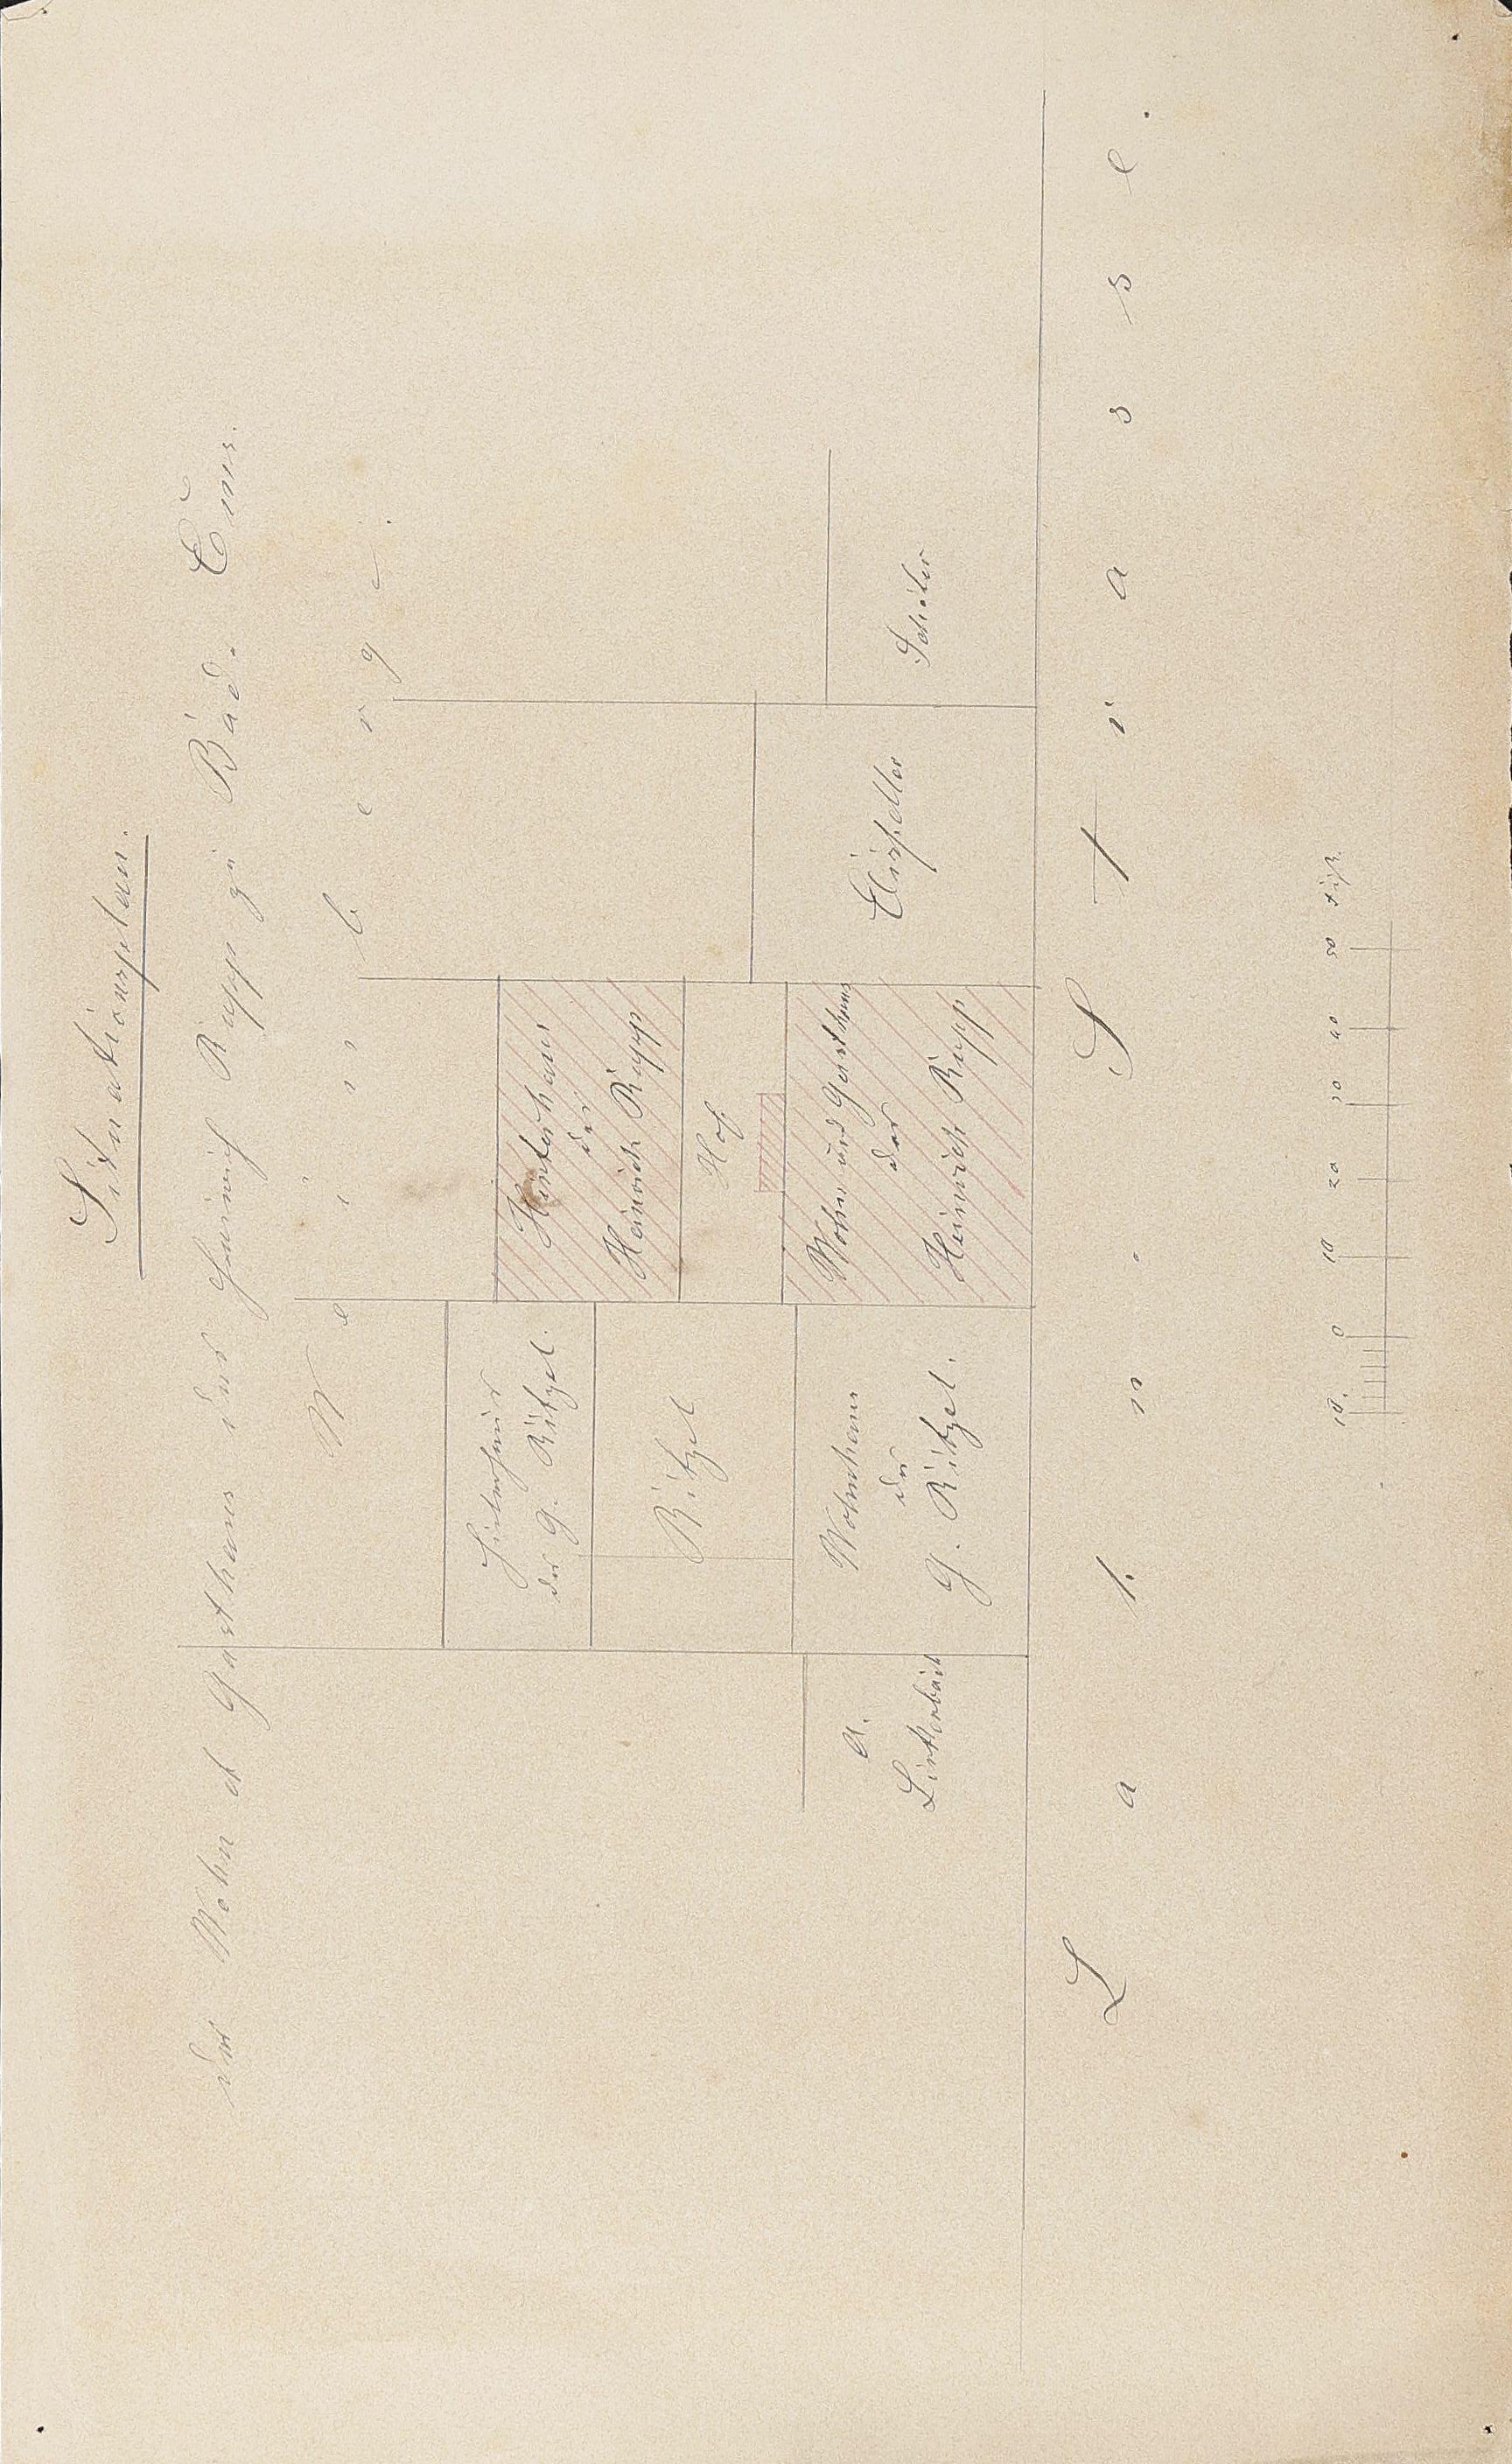 Situationsplan.
des Wohn et Gasthaus des Heinrich Rupp zu Bad-Ems.
Weinberge.
Hinterhaus
des G. Bützel.
Hinterhaus
des
Heinrich Rupp
Bützel
Hof.
A.
Wohnhaus
des
G. Bützel.
Wohn und Gasthaus
des
Heinrich Rupp
Lahn-Strasse.
10. 0 10 20 30 40 50 Fuß.